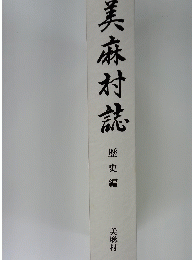 美麻村誌
歴史編
美麻村